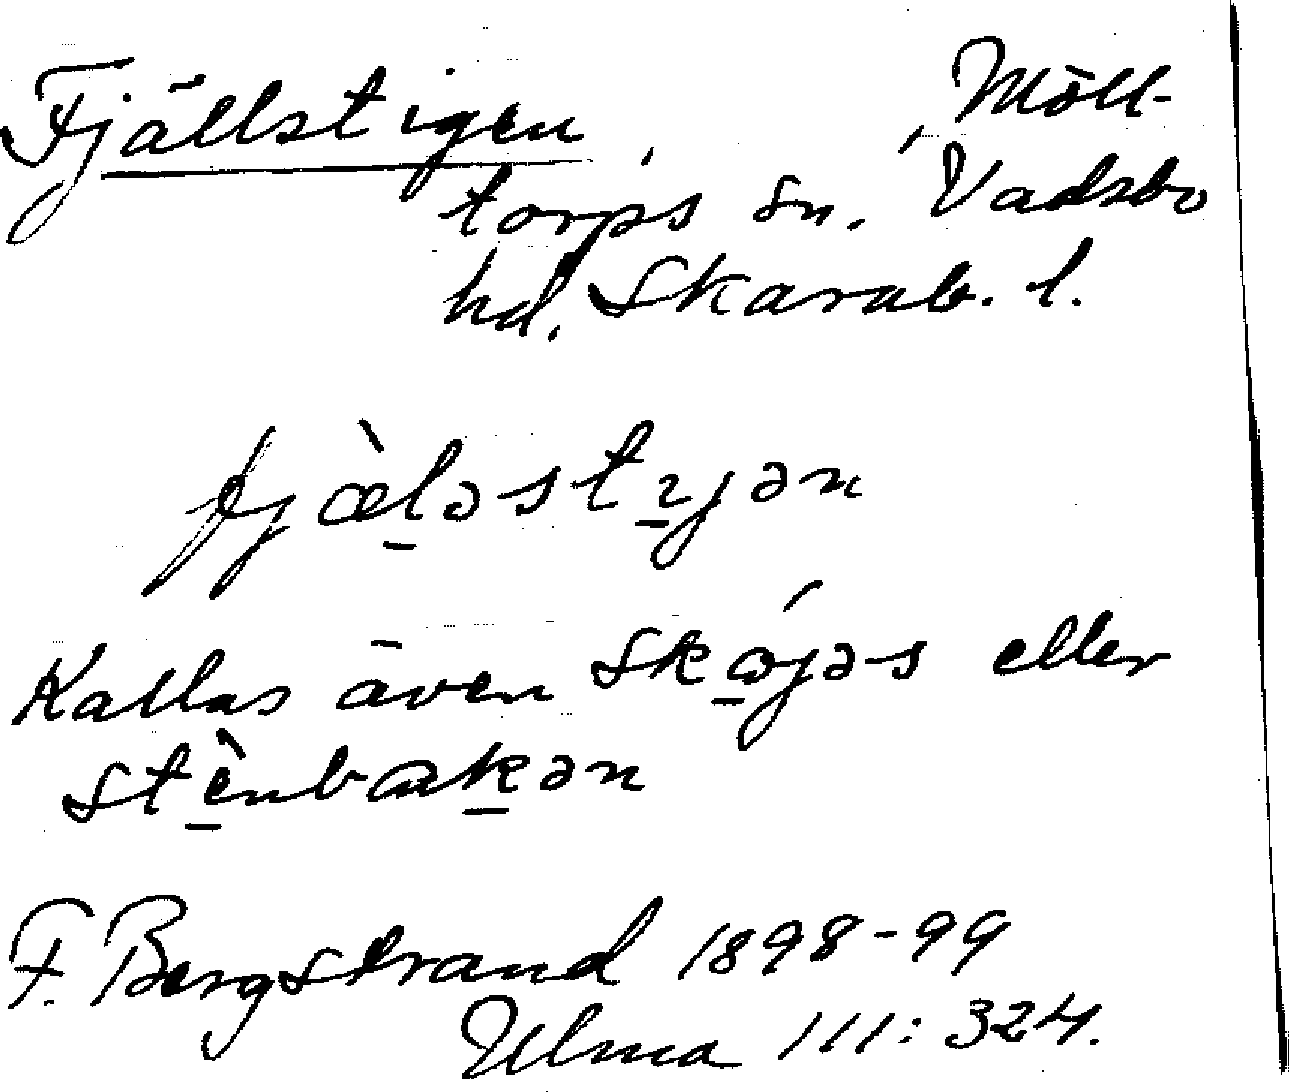 Fjällstigen, Möll-
torps sn. Vadsbo
hd. Skarab. l.
fjæ̀l̠əstı̠jən
Kallas även skǿ̠jəs eller
stè̠nbak̠ən
F. Bergstrand 1898-99
Ulma 111: 324.